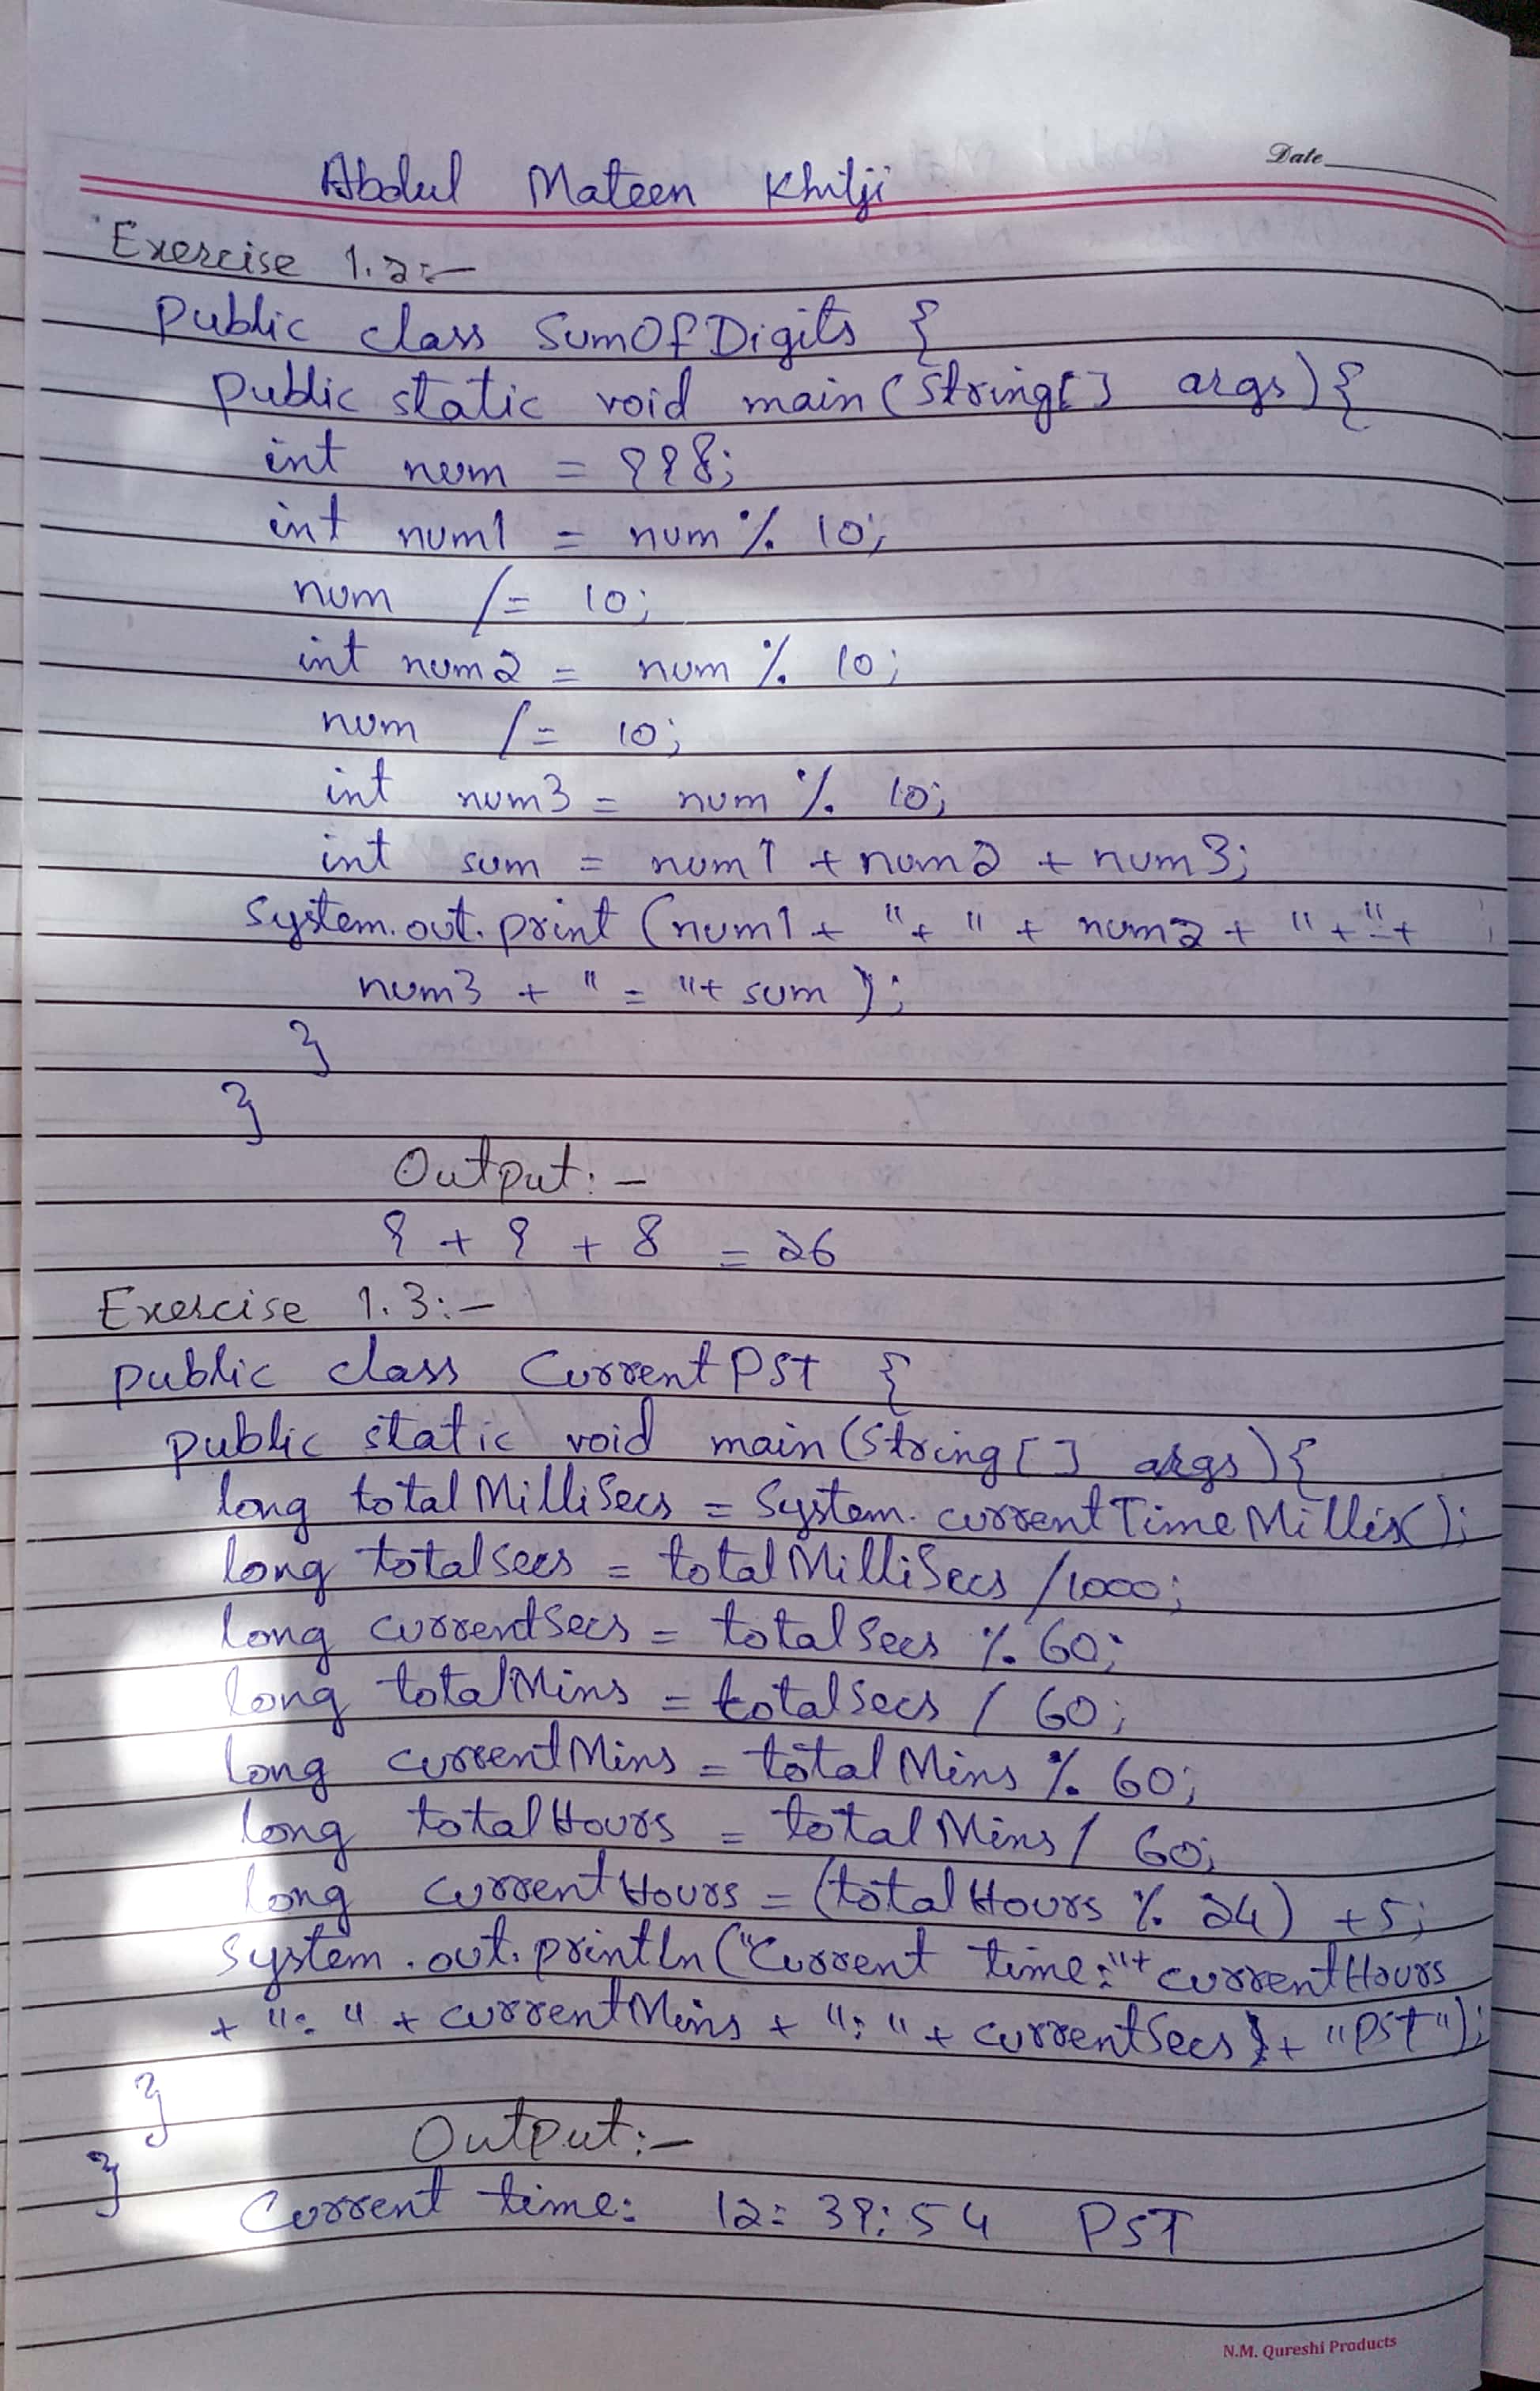 Date
Abdul Mateen Khilji
Exercise 1.2:-
public class SumOfDigits {
public static void main (String[] args) {
int num = 998;
int num1 = num % 10;
num /= 10;
int num2 = num % 10;
num /= 10;
int num3 = num % 10;
int sum = num1 + num2 + num3;
System.out.print (num1 + "+" + num2 + "+" +
num3 + " = "+ sum );
}
}
Output:-
9 + 9 + 8 = 26
Exercise 1.3:-
public class CurrentPST {
public static void main (String [] args) {
long totalMilliSecs = System.currentTimeMillis();
long totalSecs = totalMilliSecs /1000;
long currentSecs = totalSecs % 60;
long totalMins = totalSecs / 60;
long currentMins = totalMins % 60;
long totalHours = totalMins / 60;
long currentHours = (totalHours % 24) +5;
System.out.println ("Current time:"+ currentHours
+ ":" + currentMins + ":" + currentSecs + "PST");
}
}
Output:-
Current time: 12:39:54 PST
N.M. Qureshi Products